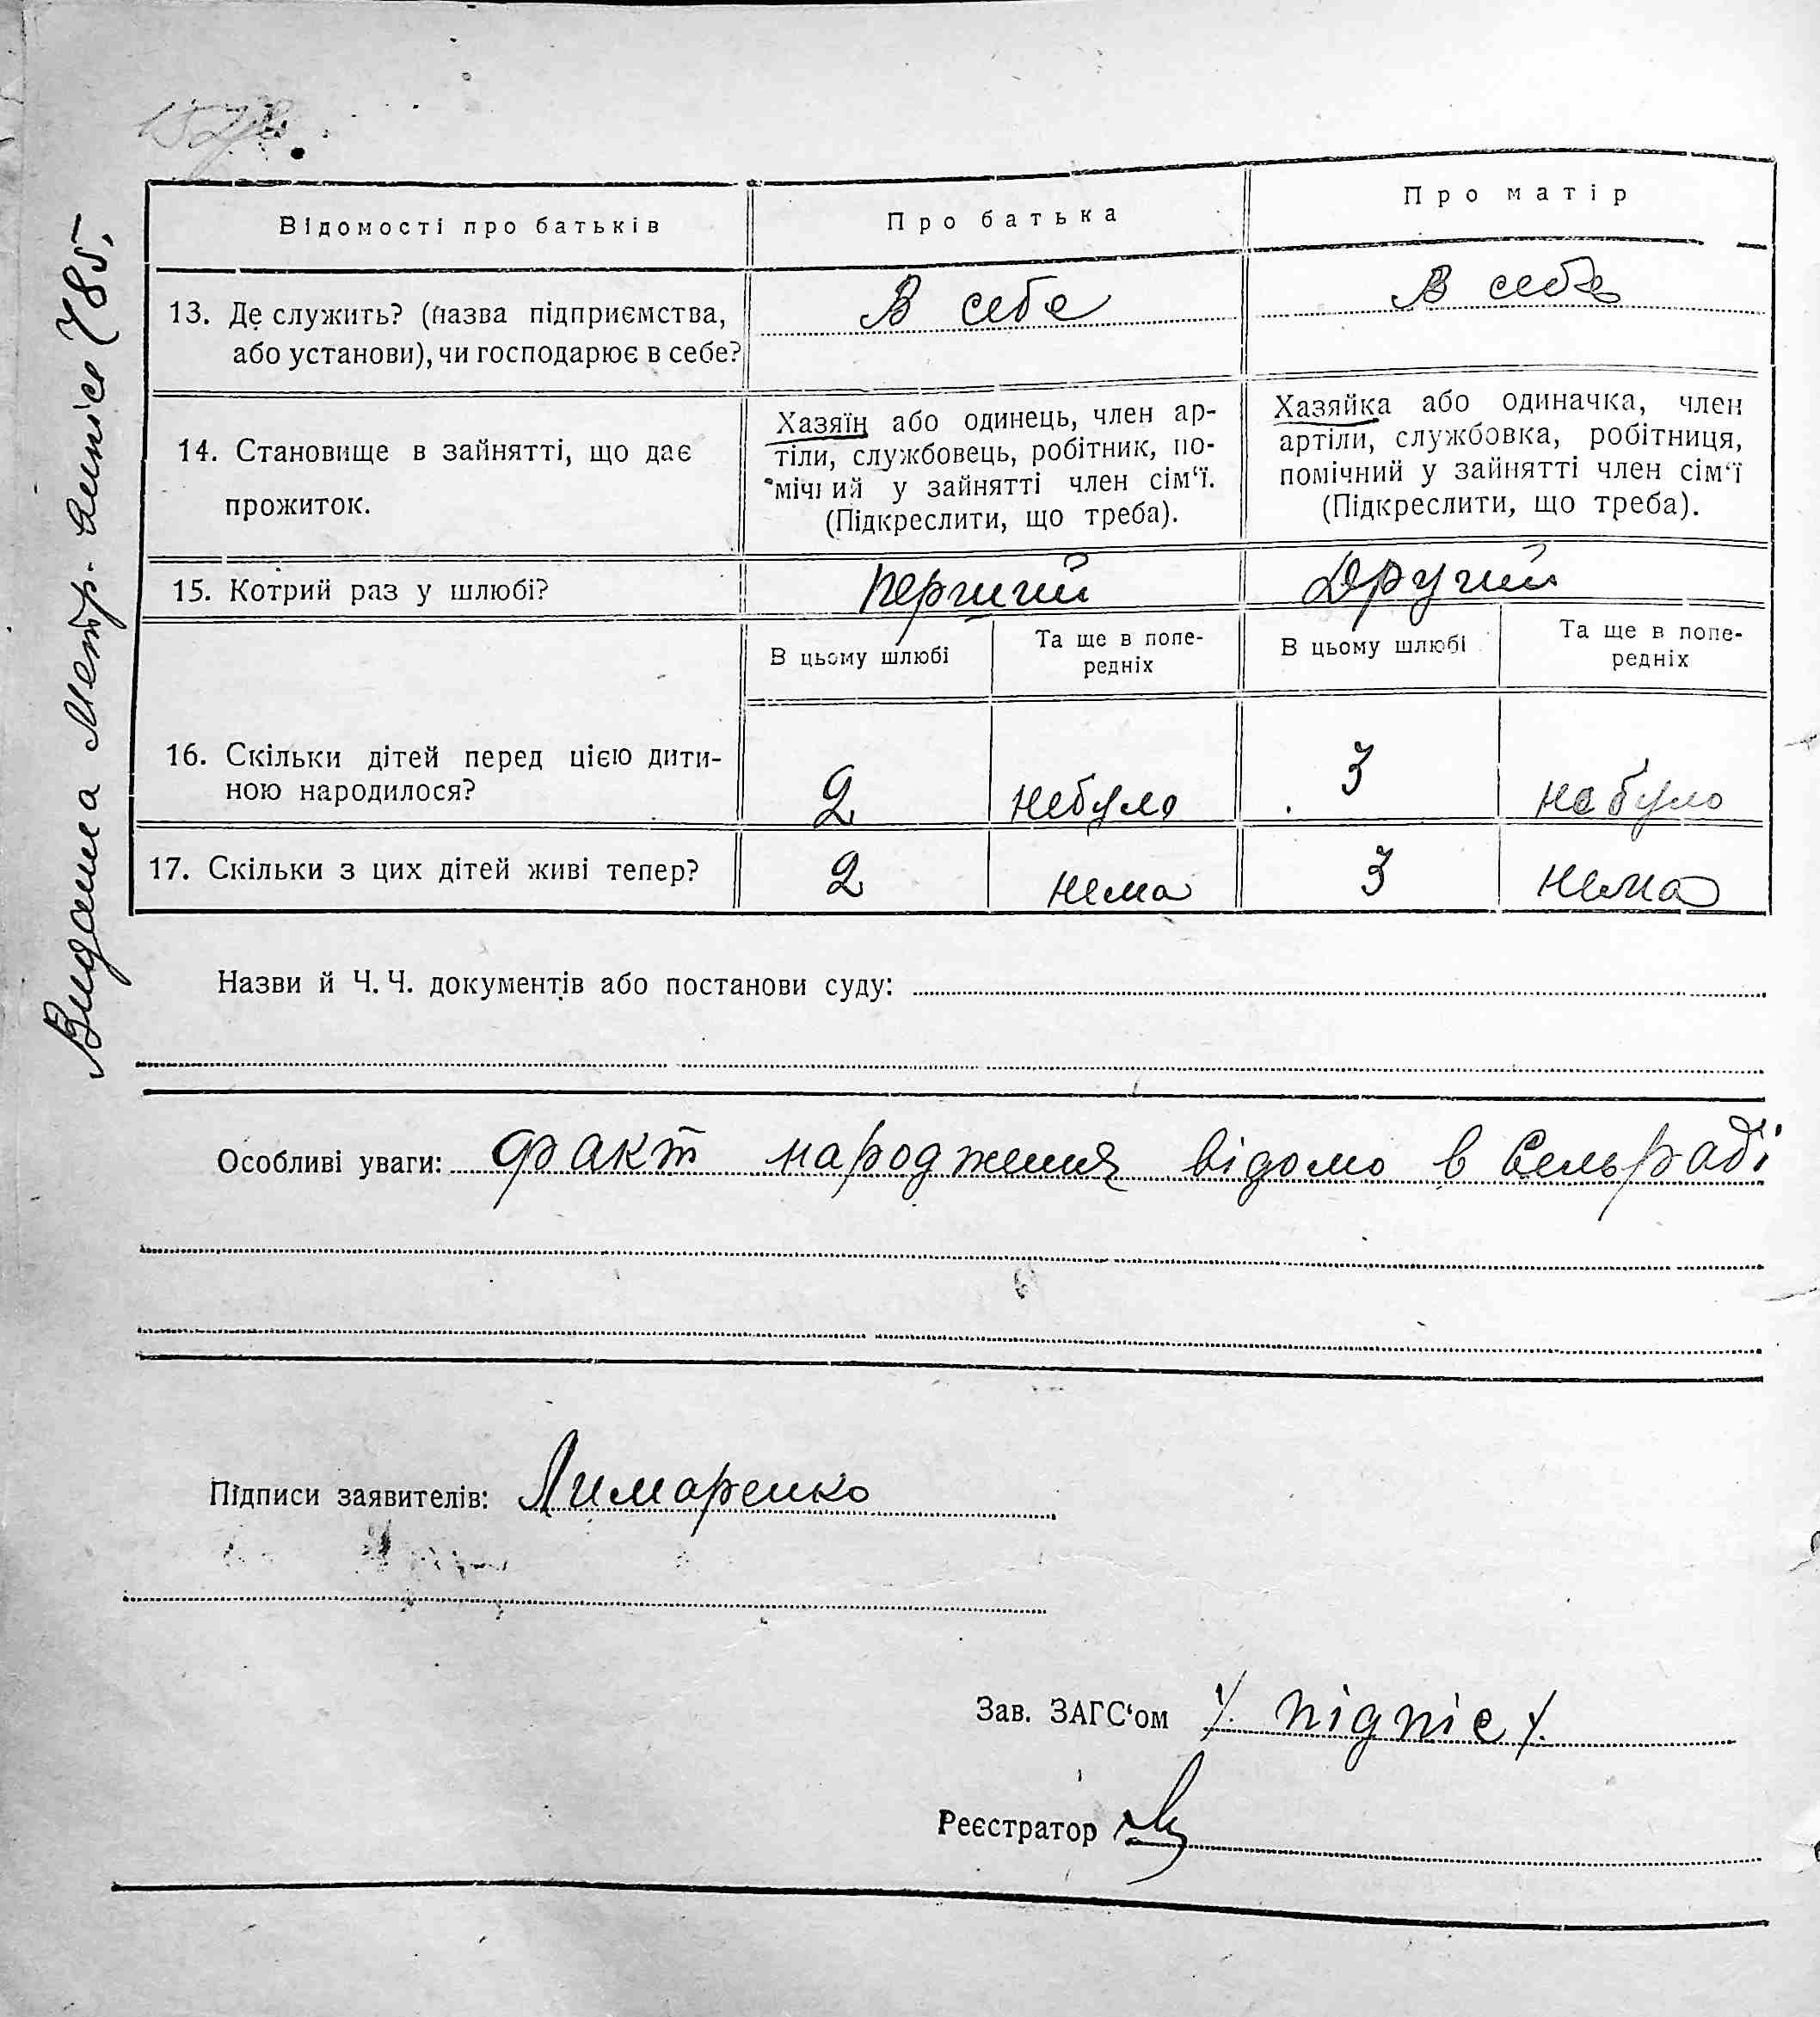 Відомості про батьків
Про батька
Про матір
13. Де служить? (назва підприємства,
або установи), чи господарює в себе?
В себе
В себе
14. Становище в зайнятті, що дає
прожиток.
Хазяїн або одинець, член ар-
тіли, службовець, робітник, по-
мічний у зайнятті член сім'ї.
(Підкреслити, що треба).
Хазяйка або одиначка, член
артіли, службовка, робітниця,
помічний у зайнятті член сім'ї
(Підкреслити, що треба).
15. Котрий раз у шлюбі?
перший
Другий
В цьому шлюбі
Та ще в попе-
редніх
В цьому шлюбі
Та ще в попе-
редніх
16. Скільки дітей перед цією дити-
ною народилося?
2
небуло
3
небуло
17. Скільки з цих дітей живі тепер?
2
нема
3
нема
Назви й Ч. Ч. документів або постанови суду:
Особливі уваги: факт народження відомо в сельраді
Підписи заявителів: Лимаренко
Зав. ЗАГС'ом /. підпіс /.
Реєстратор
Видана Метр. випис 785.